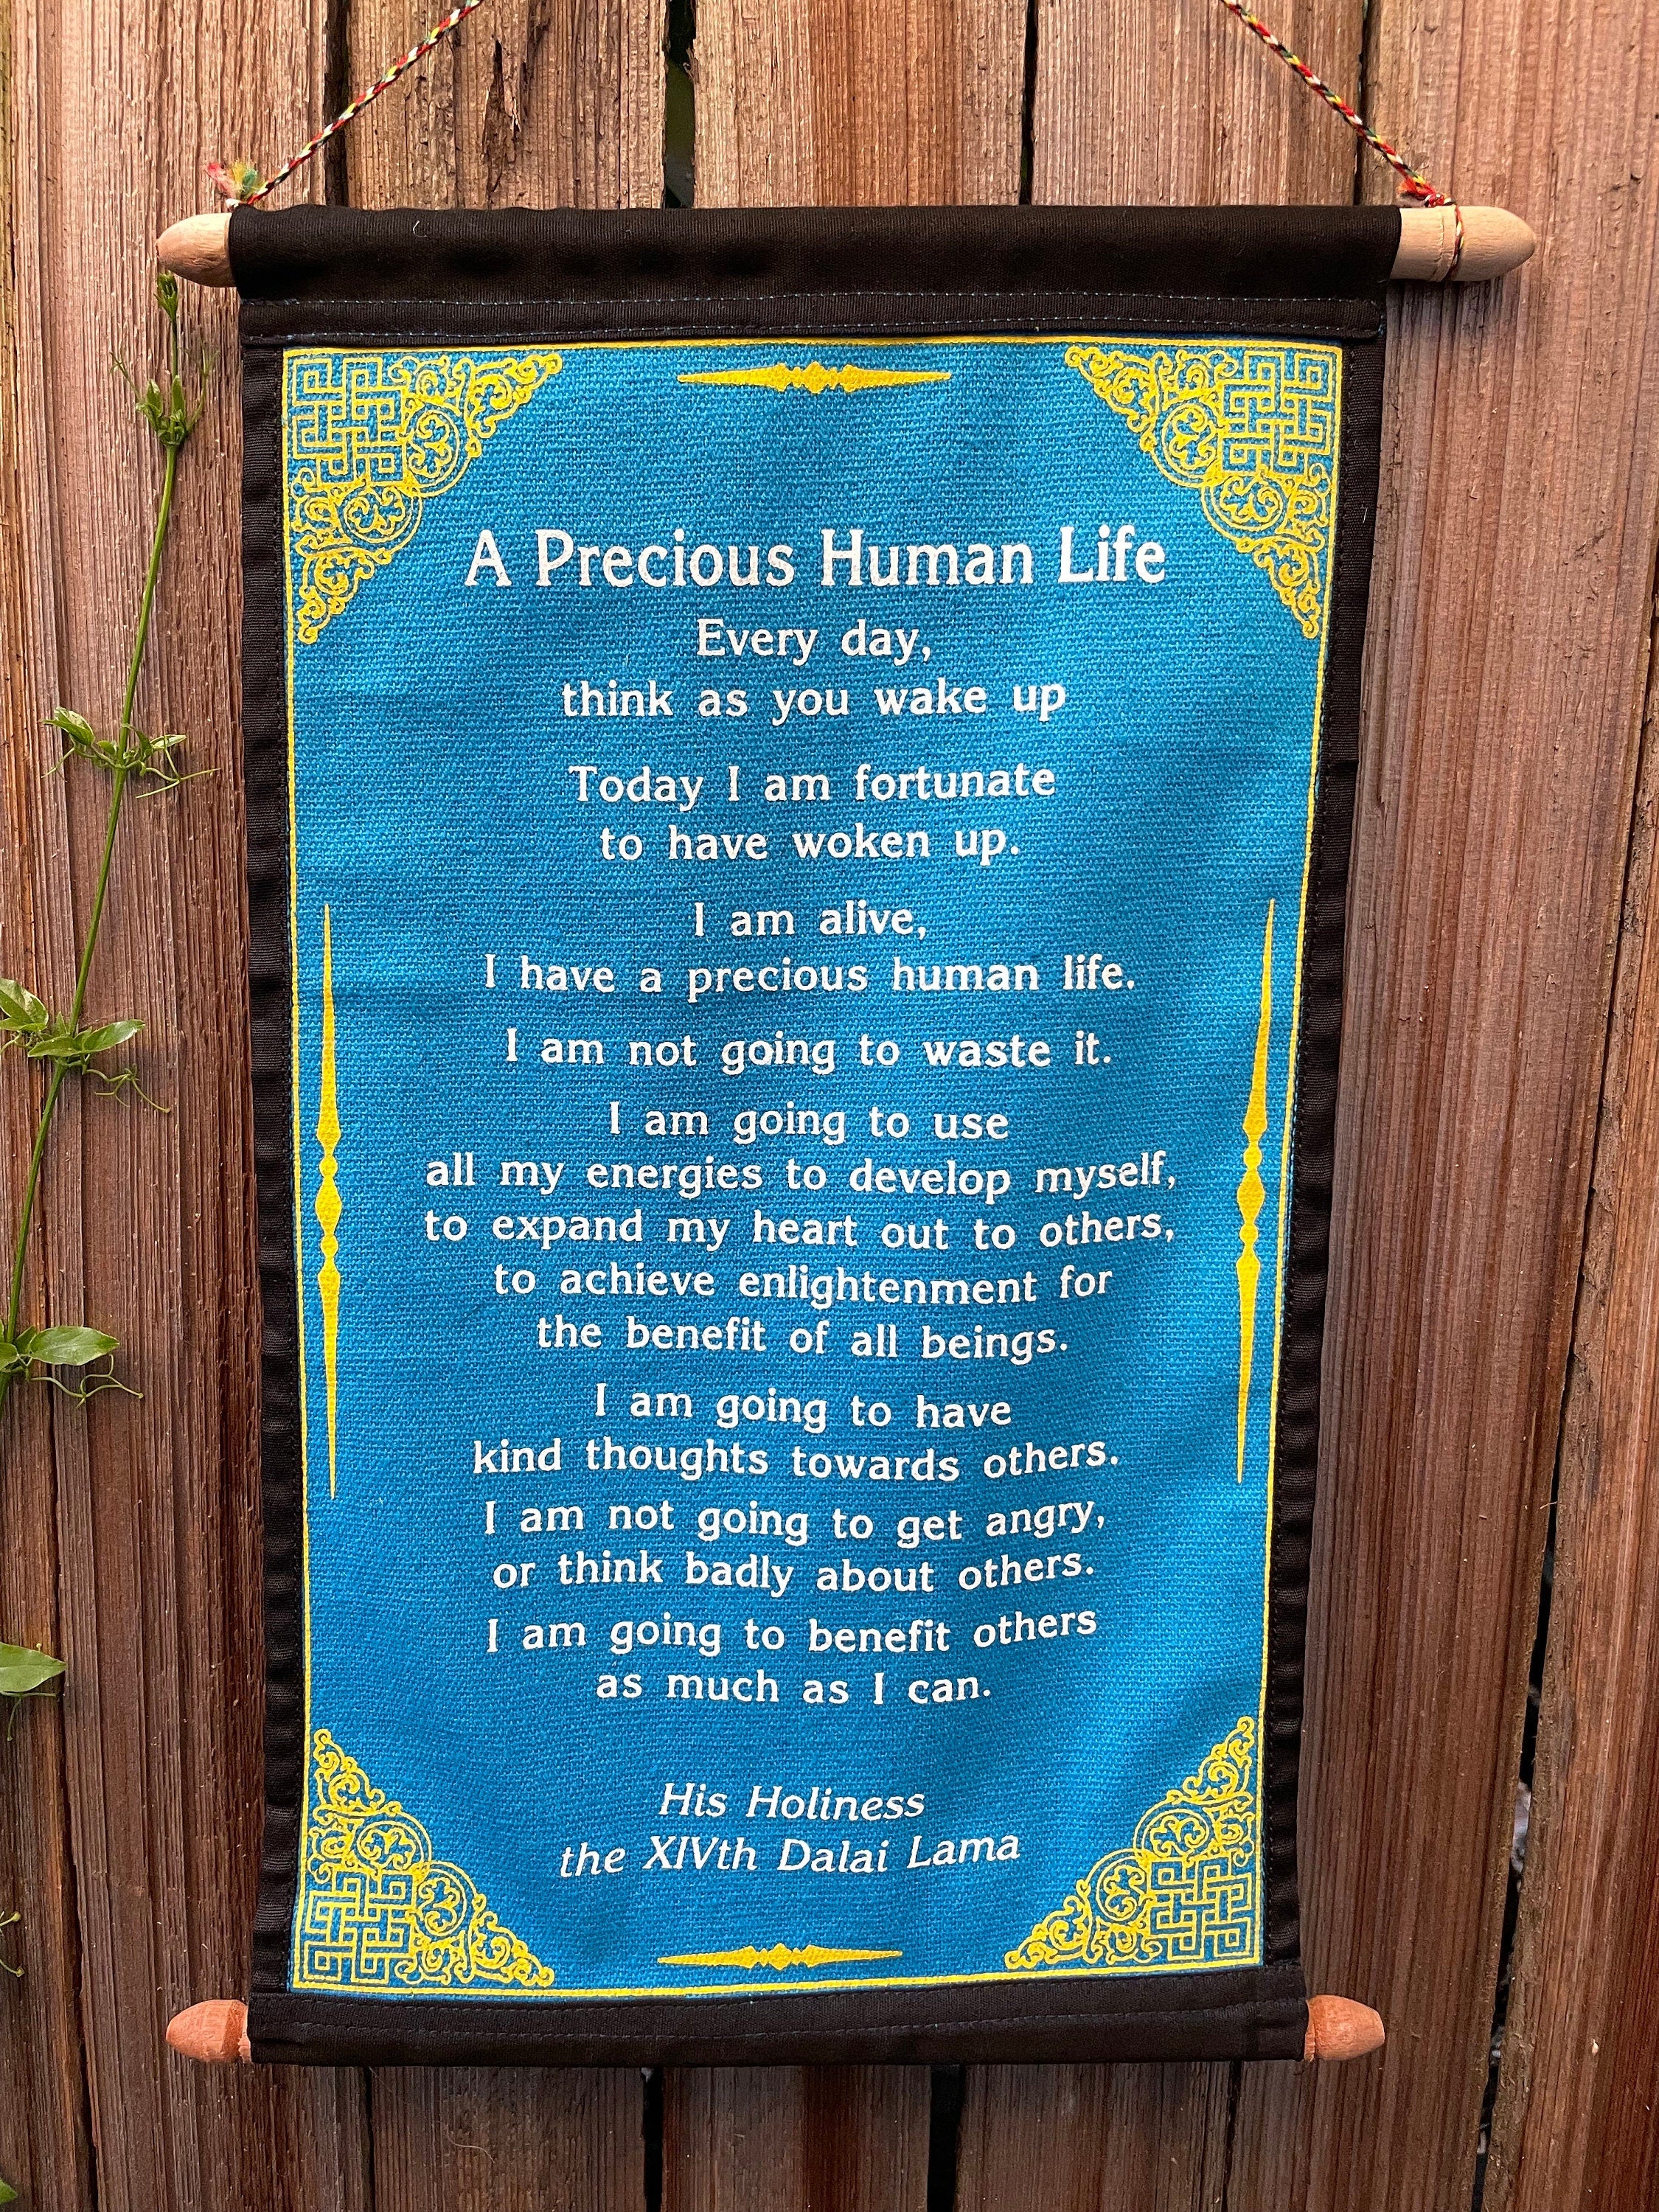 A Precious Human Life
Every day,
think as you wake up
Today I am fortunate
to have woken up.
I am alive,
I have a precious human life.
I am not going to waste it.
I am going to use
all my energies to develop myself,
to expand my heart out to others,
to achieve enlightenment for
the benefit of all beings.
I am going to have
kind thoughts towards others.
I am not going to get angry,
or think badly about others.
I am going to benefit others
as much as I can.
His Holiness
the XIVth Dalai Lama